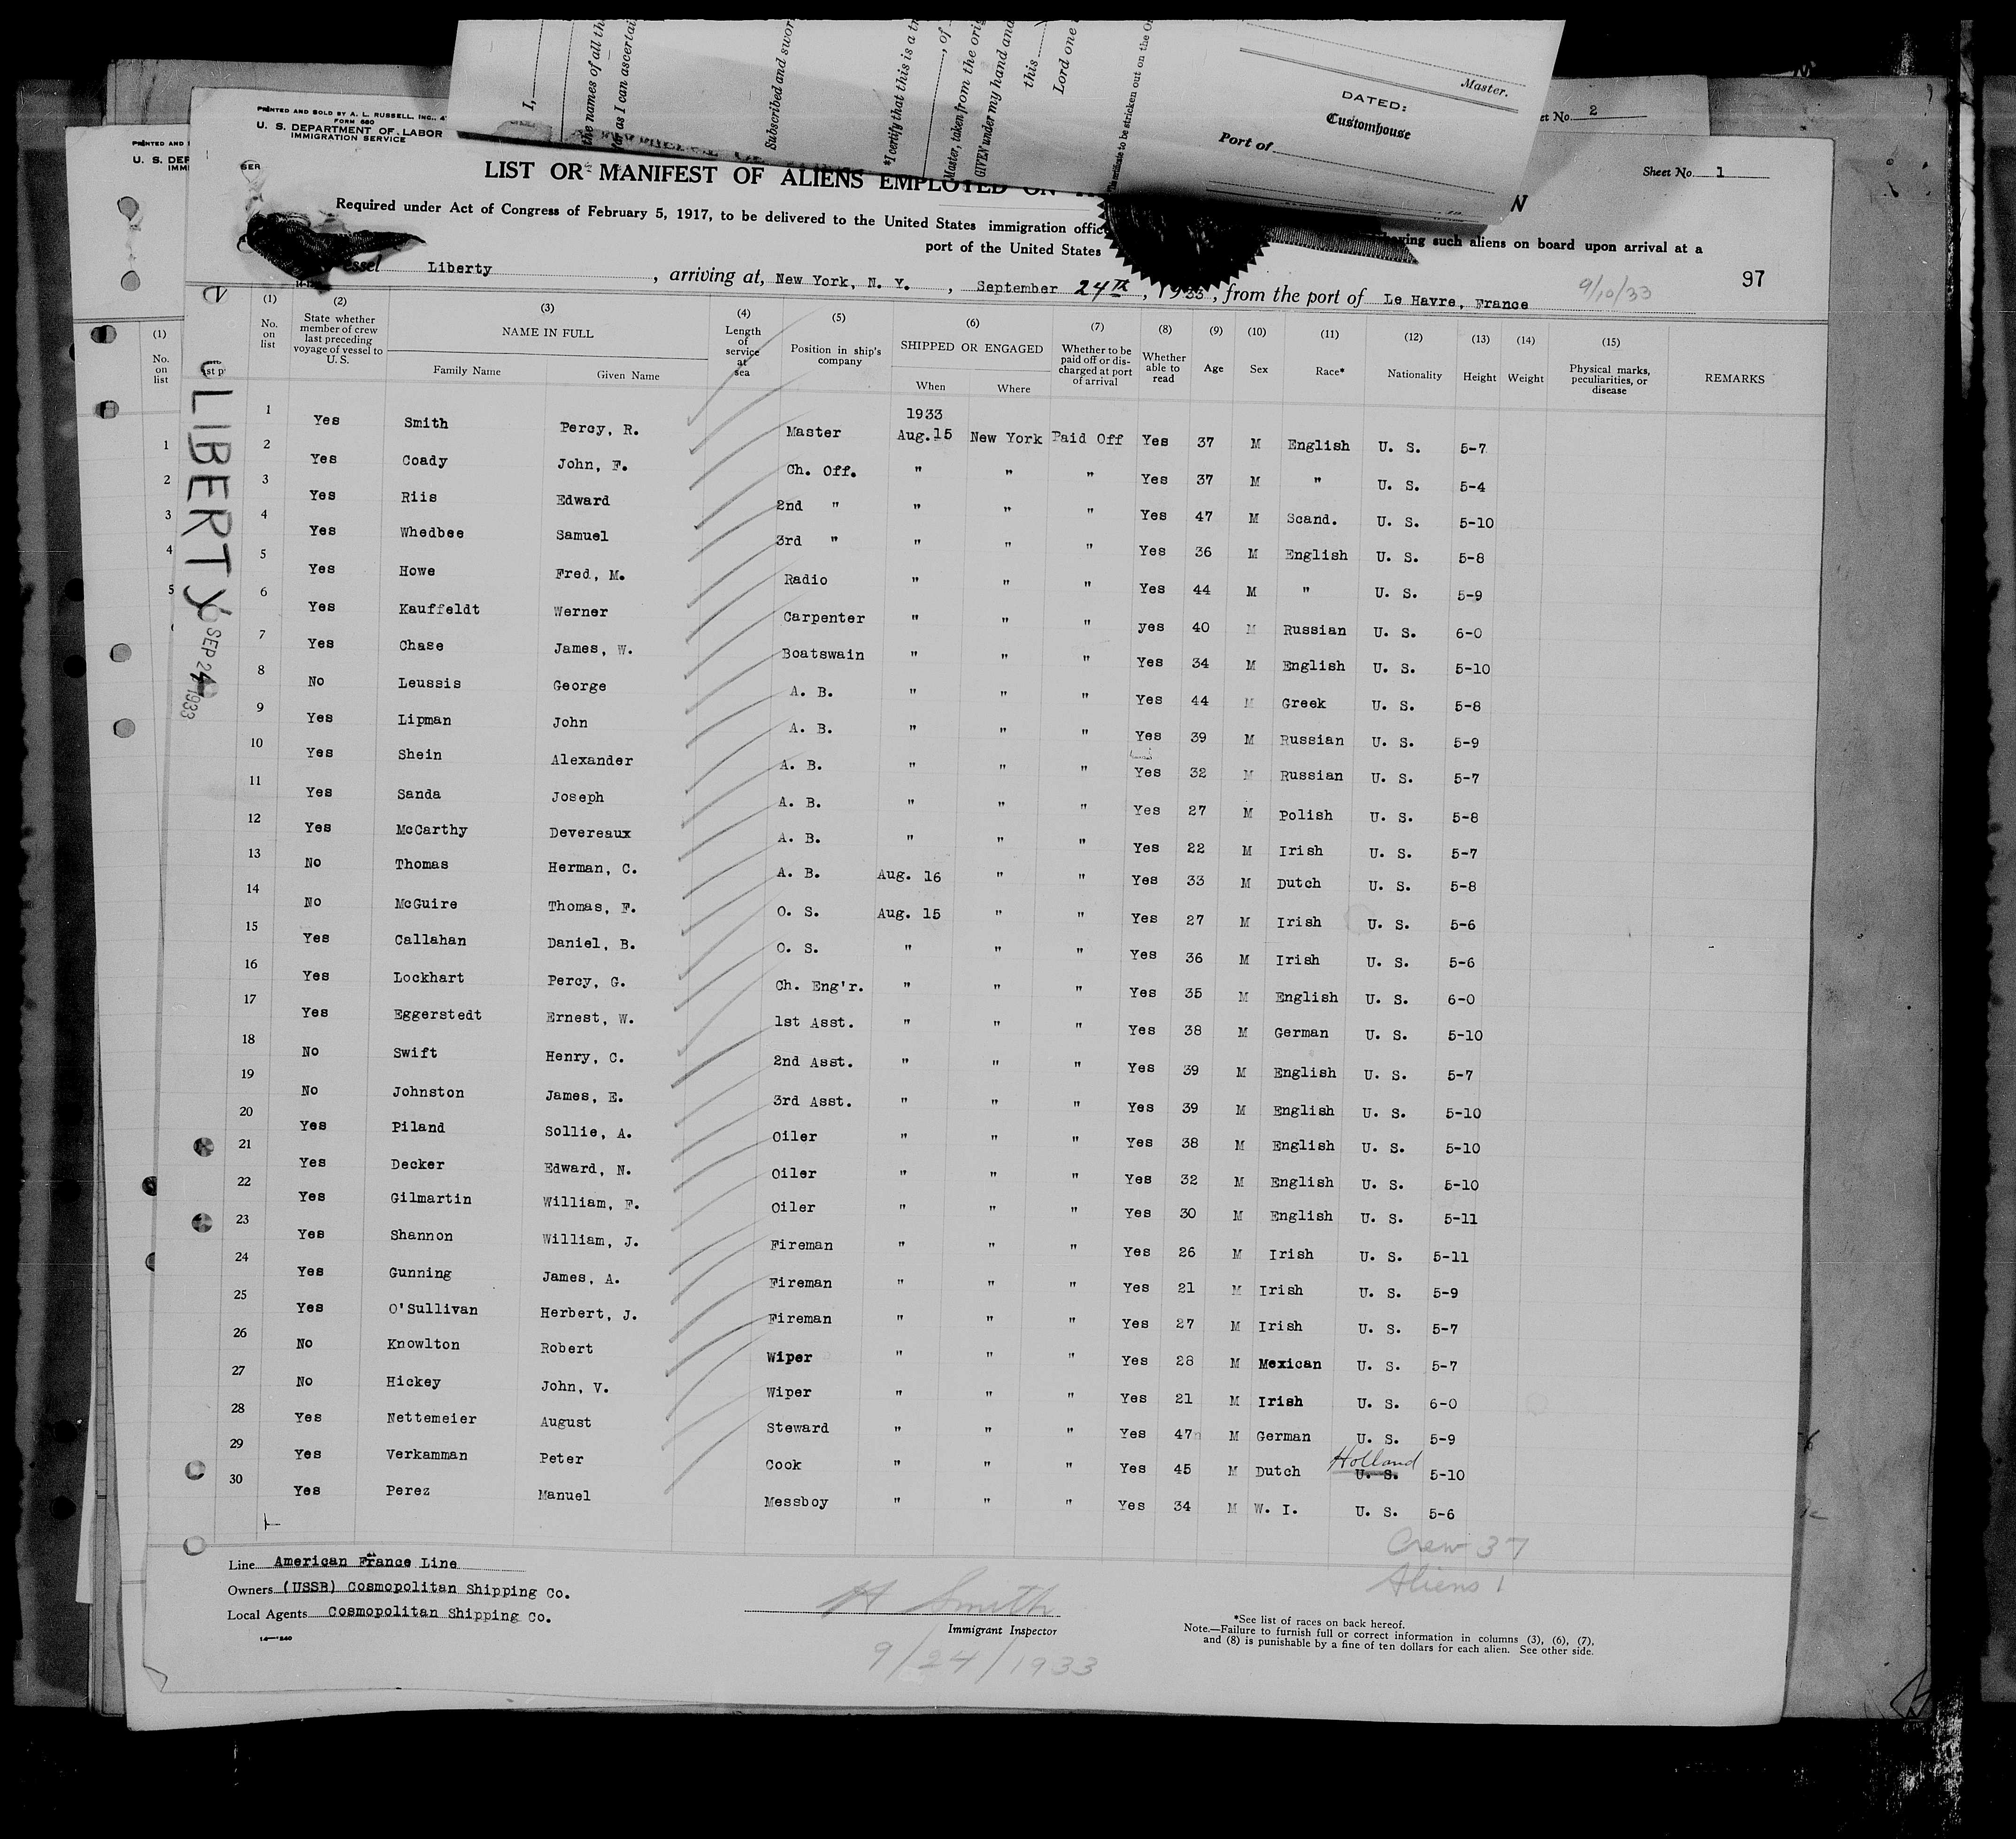 I,
the names of all th
far as I can ascertai
Subscribed and swor
*I certify that this is a tr
, of
Master, taken from the orig
GIVEN under my hand and
this
Lord one
Master.
DATED:
Customhouse
Port of
et No. 2
PRINTED AND
U. S. DEP
IMMI
PRINTED AND SOLD BY A. L. RUSSELL, INC., 4
FORM 680
U. S. DEPARTMENT OF LABOR
IMMIGRATION SERVICE
SER
Sheet No. 1
LIST OR MANIFEST OF ALIENS EMPLOYED ON
Required under Act of Congress of February 5, 1917, to be delivered to the United States immigration offic such aliens on board upon arrival at a
port of the United States
97
essel Liberty , arriving at, New York, N. Y. , September 24th, 1933, from the port of Le Havre, France 9/10/33
LIBERTY
SEP 24 1933
(1) No. on list
(2) State whether member of crew last preceding voyage of vessel to U. S.
(3) NAME IN FULL Family Name Given Name
(4) Length of service at sea
(5) Position in ship's company
(6) SHIPPED OR ENGAGED When Where
(7) Whether to be paid off or discharged at port of arrival
(8) Whether able to read
(9) Age
(10) Sex
(11) Race*
(12) Nationality
(13) Height
(14) Weight
(15) Physical marks, peculiarities, or disease
REMARKS
1933
1 Yes Smith Percy, R. Master Aug.15 New York Paid Off Yes 37 M English U. S. 5-7
2 Yes Coady John, F. Ch. Off. " " " Yes 37 M " U. S. 5-4
3 Yes Riis Edward 2nd " " " " Yes 47 M Scand. U. S. 5-10
4 Yes Whedbee Samuel 3rd " " " " Yes 36 M English U. S. 5-8
5 Yes Howe Fred, M. Radio " " " Yes 44 M " U. S. 5-9
6 Yes Kauffeldt Werner Carpenter " " " yes 40 M Russian U. S. 6-0
7 Yes Chase James, W. Boatswain " " " Yes 34 M English U. S. 5-10
8 No Leussis George A. B. " " " Yes 44 M Greek U. S. 5-8
9 Yes Lipman John A. B. " " " Yes 39 M Russian U. S. 5-9
10 Yes Shein Alexander A. B. " " " Yes 32 M Russian U. S. 5-7
11 Yes Sanda Joseph A. B. " " " Yes 27 M Polish U. S. 5-8
12 Yes McCarthy Devereaux A. B. " " " Yes 22 M Irish U. S. 5-7
13 No Thomas Herman, C. A. B. Aug. 16 " " Yes 33 M Dutch U. S. 5-8
14 No McGuire Thomas, F. O. S. Aug. 15 " " Yes 27 M Irish U. S. 5-6
15 Yes Callahan Daniel, B. O. S. " " " Yes 36 M Irish U. S. 5-6
16 Yes Lockhart Percy, G. Ch. Eng'r. " " " Yes 35 M English U. S. 6-0
17 Yes Eggerstedt Ernest, W. 1st Asst. " " " Yes 38 M German U. S. 5-10
18 No Swift Henry, C. 2nd Asst. " " " Yes 39 M English U. S. 5-7
19 No Johnston James, E. 3rd Asst. " " " Yes 39 M English U. S. 5-10
20 Yes Piland Sollie, A. Oiler " " " Yes 38 M English U. S. 5-10
21 Yes Decker Edward, N. Oiler " " " Yes 32 M English U. S. 5-10
22 Yes Gilmartin William, F. Oiler " " " Yes 30 M English U. S. 5-11
23 Yes Shannon William, J. Fireman " " " Yes 26 M Irish U. S. 5-11
24 Yes Gunning James, A. Fireman " " " Yes 21 M Irish U. S. 5-9
25 Yes O'Sullivan Herbert, J. Fireman " " " Yes 27 M Irish U. S. 5-7
26 No Knowlton Robert Wiper " " " Yes 28 M Mexican U. S. 5-7
27 No Hickey John, V. Wiper " " " Yes 21 M Irish U. S. 6-0
28 Yes Nettemeier August Steward " " " Yes 47 M German U. S. 5-9
29 Yes Verkamman Peter Cook " " " Yes 45 M Dutch Holland U. S. 5-10
30 Yes Perez Manuel Messboy " " " Yes 34 M W. I. U. S. 5-6
Crew 37
Aliens 1
Line American France Line
Owners (USSB) Cosmopolitan Shipping Co.
Local Agents Cosmopolitan Shipping Co.
H Smith
Immigrant Inspector
9/24/1933
*See list of races on back hereof.
Note.—Failure to furnish full or correct information in columns (3), (6), (7),
and (8) is punishable by a fine of ten dollars for each alien. See other side.